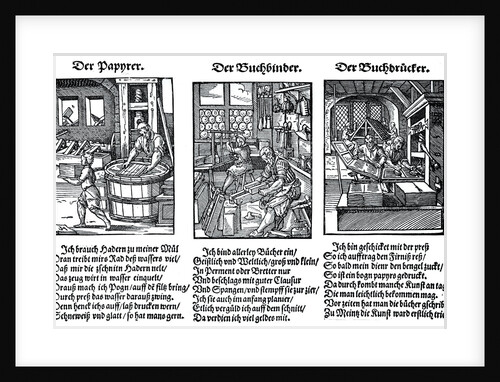 Der Papyrer.
Ich brauch Hadern zu meiner Mül
Dran treibt mirs Rad deß wassers viel/
Daß mir die zschnitn Hadern nelt/
Das zeug wirt in wasser einquelt/
Drauß mach ich Pogn/ auff dē filtz bring/
Durch preß das wasser darauß zwing.
Denn henck ichs auff/ laß drucken wern/
Schneweiß und glatt/ so hat mans gern.
Der Buchbinder.
Ich bind allerley Bücher ein/
Geistlich und Weltlich/ groß und klein/
In Perment oder Bretter nur
Und beschlags mit guter Clausur
Und Spangen/ und stempff sie zur zier/
Ich sie auch im anfang planier/
Etlich vergüld ich auff dem schnitt/
Da verdien ich viel geldes mit.
Der Buchdrücker.
Ich bin geschicket mit der preß
So ich aufftrag den Firniß reß/
So bald mein dienr den bengel zuckt/
So ist ein bogn papyrs gedruckt.
Da durch kombt manche Kunst an tag
Die man leichtlich bekommen mag.
Vor zeiten hat man die bücher gschrib
Zu Meintz die Kunst ward erstlich trie